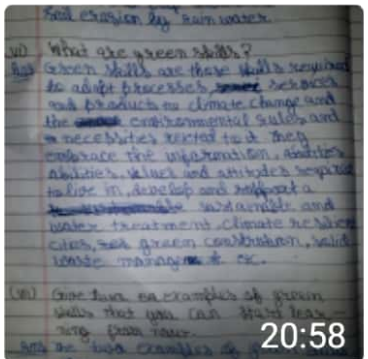 soil erosion by rain water.
vi) What are green skills?
Ans Green skills are those skills required
to adopt processes, services
and products to climate change and
the environmental rules and
necessities related to it they
embrace the information, abilities
abilities, values and attitudes required
to live in, develop and support a
sustainable and
water treatment, climate
cities, green construction, solid
waste etc.
(vii) Give two examples of green
skills that you can start lear-
ning from now.
Ans The two examples
20:58